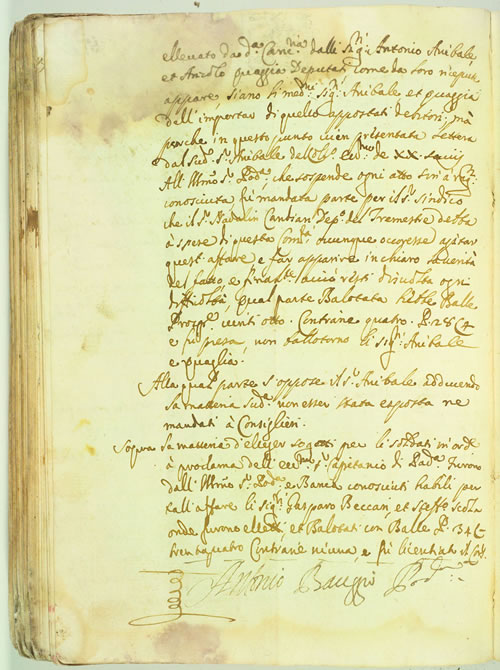 ellevato da d.ª Canc.ria dalli Sig.ri Antonio Anibale,
et Quaggia Deputati come da loro
appare siano li med.mi Sig.ri Anibale et Quaggia
dell'importar di quello appostati debitori; mà
perche in questo punto vien presentata Lettera
dal Sud.º S.r Anibale dell' de XX Savij
All' Ill.mo S.r Pod.tà che sospende ogni atto sin à
conosciuta fù mandata parte per il S.r Sindico
che il S.r Nadalin Cantian Dep.º del Trimestre
à spese di questa Com.tà ovunque occoresse ajutar
quest'affare e far apparire in chiaro la verità
del fatto, e acciò resti ogni
difficoltà qual parte Balotata hebbe Balle
Prospere vinti otto. Contrarie quatro. P. 28 C 4
e fù presa, non ballotorno li Sig.ri Anibale
e Quaglia.
Alla qual parte s'oppose il S.r Anibale adducendo
la materia Sud.ª non esser stata esposta ne
mandati à Consiglieri.
Sopra la materia d'elleger sogetti per li soldati in ord.e
à proclama dell' Ecc.mo S.r Capitanio di Pad.ª furono
dall' Ill.mo S.r Pod.tà e Banca conosciuti habili per
tall'affare li Sig.ri Gasparo Beccari, et Steff.º Scola
onde furono elletti, et Balotati con Balle P. 34 C
trentaquatro Contrarie niuna, e fù licentiato il
Antonio Pod.tà